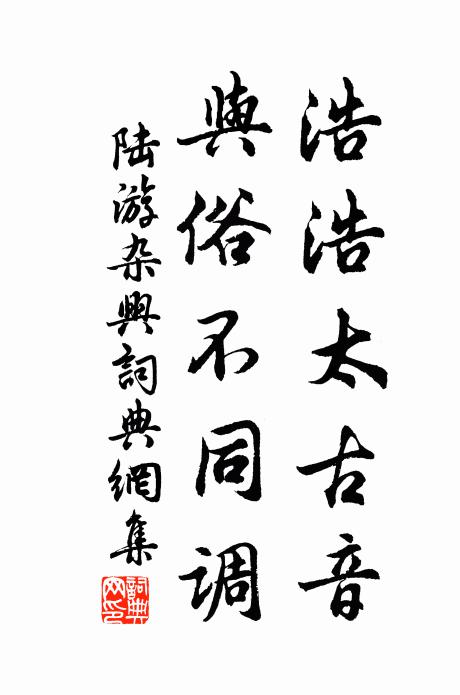 浩浩太古音
與俗不同调
陆游杂興詞典網集
詞典网印